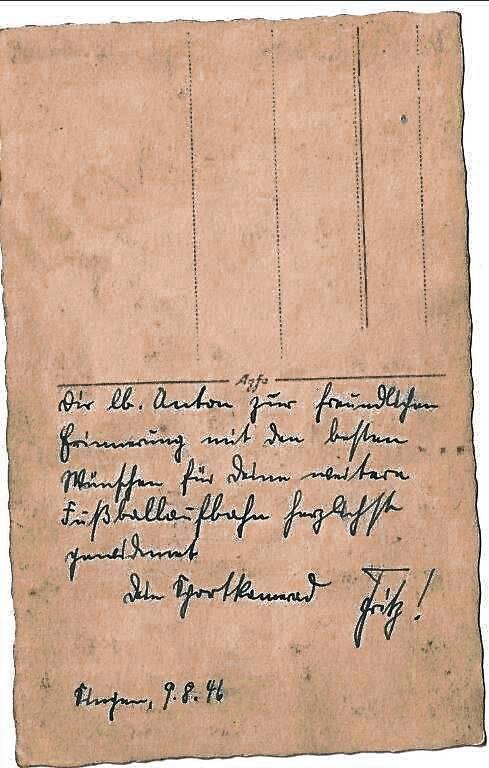 Agfa
Dir lb. Anton zur freundlichen
Erinnerung mit den besten
Wünschen für Deine weitere
Fußballaufbahn herzlichst
gewidmet
Dein Sportkamerad Fritz!
Singen, 9.8.46